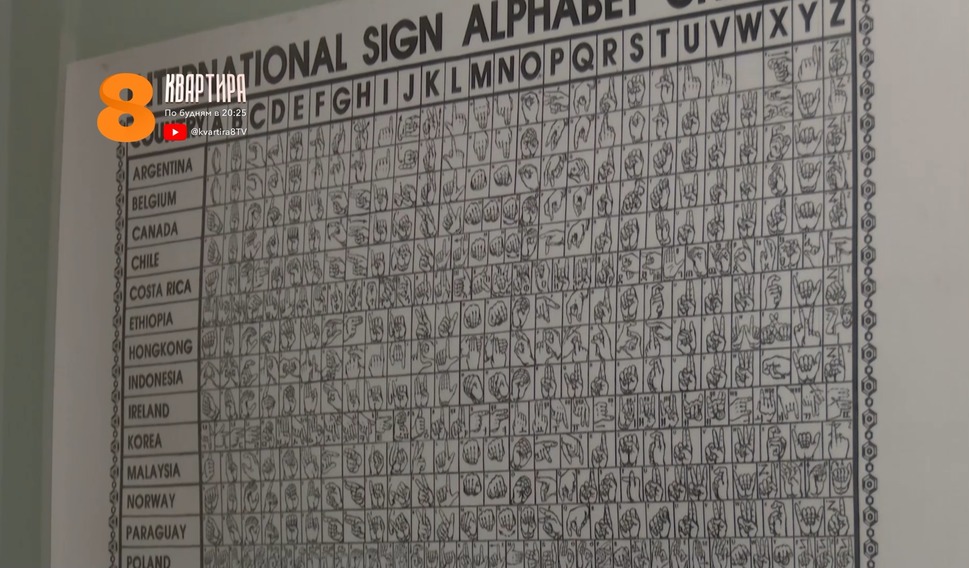 INTERNATIONAL SIGN ALPHABET
8 КВАРТИРА
По будням в 20:25
@kvartira8TV
COUNTRY A B C D E F G H I J K L M N O P Q R S T U V W X Y Z
ARGENTINA
BELGIUM
CANADA
CHILE
COSTA RICA
ETHIOPIA
HONGKONG
INDONESIA
IRELAND
KOREA
MALAYSIA
NORWAY
PARAGUAY
POLAND